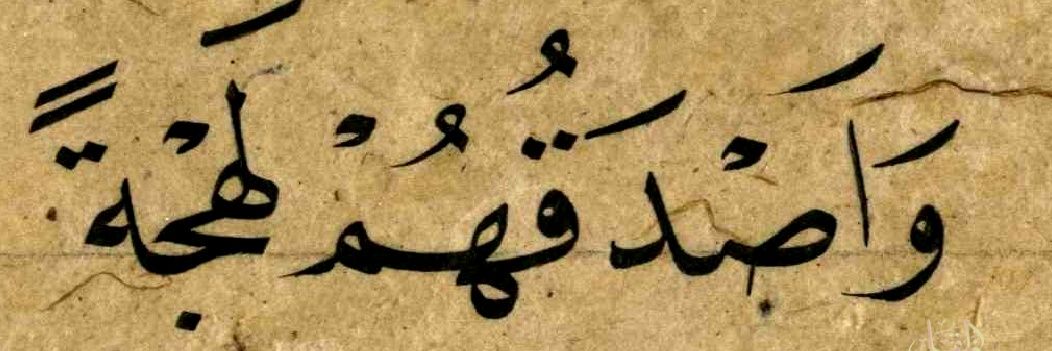 وَاَصْدَقُهُمْ لَهْجَةً